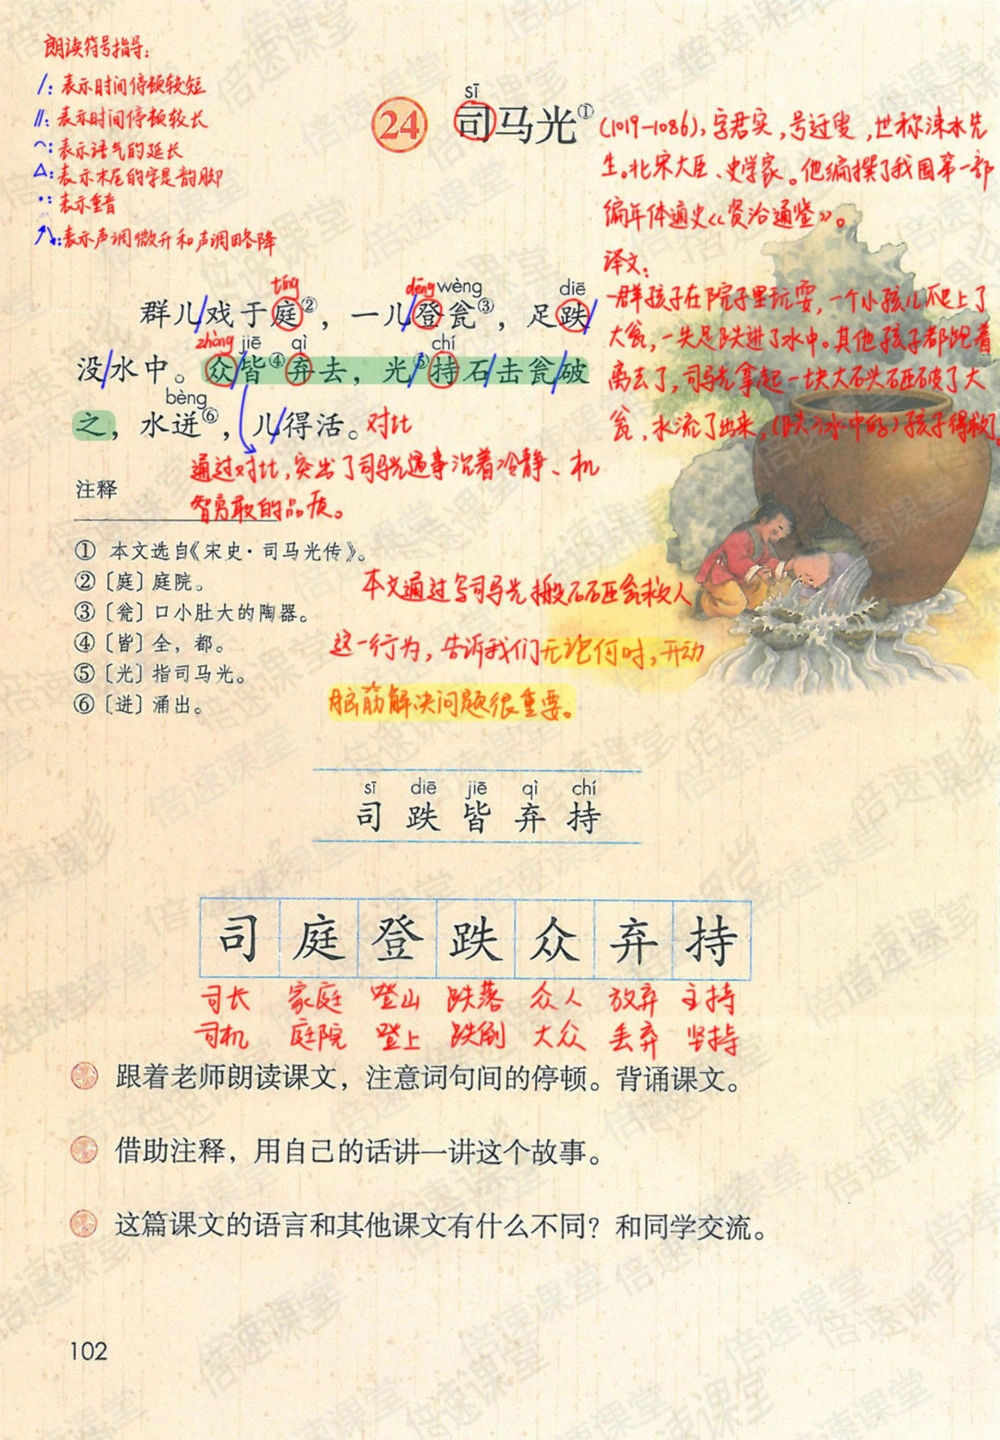 朗读符号指导：
/：表示时间停顿较短
//：表示时间停顿较长
⌒：表示语气的延长
△：表示末尾的字是韵脚
••：表示重音
↗↘：表示声调微升和声调略降
sī
24 司马光①
(1019-1086)，字君实，号迂叟，世称涑水先
生。北宋大臣、史学家。他编撰了我国第一部
编年体通史《资治通鉴》。
译文：
一群孩子在院子里玩耍，一个小孩儿爬上了
大瓮，一失足跌进了水中。其他孩子都跑着
离去了，司马光拿起一块大石头砸破了大
瓮，水流了出来，(跌入水中的)孩子得救了
tíng dēng wèng diē
群儿/戏于庭②，一儿/登瓮③，足跌/
zhòng jiē qì chí
没/水中。众/皆④弃去，光/⑤持石/击瓮/破
bèng
之，水迸⑥，儿/得活。对比
通过对比，突出了司马光遇事沉着冷静、机
智勇敢的品质。
注释
① 本文选自《宋史·司马光传》。
②〔庭〕庭院。
③〔瓮〕口小肚大的陶器。
④〔皆〕全，都。
⑤〔光〕指司马光。
⑥〔迸〕涌出。
本文通过写司马光搬石砸瓮救人
这一行为，告诉我们无论何时，开动
脑筋解决问题很重要。
sī diē jiē qì chí
司 跌 皆 弃 持
司 庭 登 跌 众 弃 持
司长 家庭 登山 跌落 众人 放弃 主持
司机 庭院 登上 跌倒 大众 丢弃 坚持
跟着老师朗读课文，注意词句间的停顿。背诵课文。
借助注释，用自己的话讲一讲这个故事。
这篇课文的语言和其他课文有什么不同？和同学交流。
102
倍速课堂